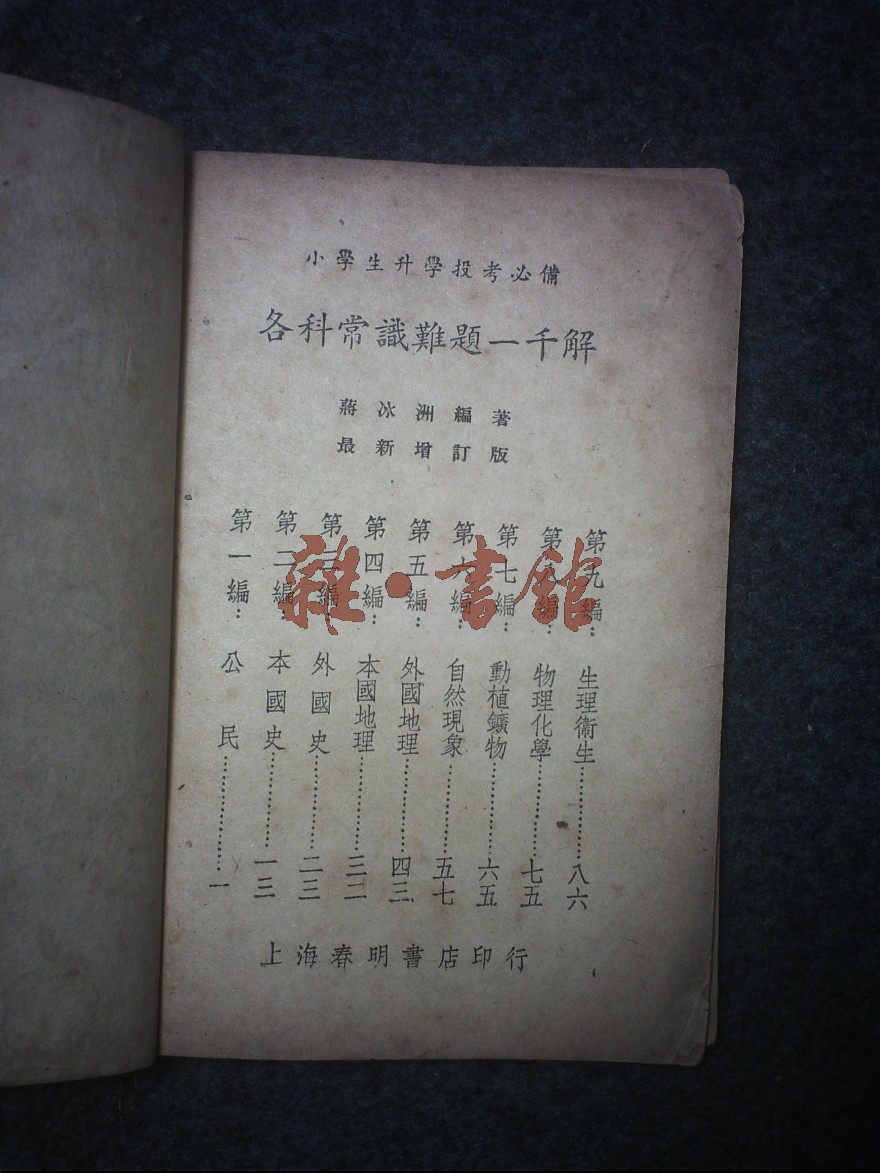 小學生升學投考必備
各科常識難題一千解
蔣冰洲編著
最新增訂版
第一編：公民……………一
第二編：本國史……………一三
第三編：外國史……………二三
第四編：本國地理……………三二
第五編：外國地理……………四三
第六編：自然現象……………五七
第七編：動植鑛物……………六五
第八編：物理化學……………七五
第九編：生理衞生……………八六
上海春明書店印行
雜·書館